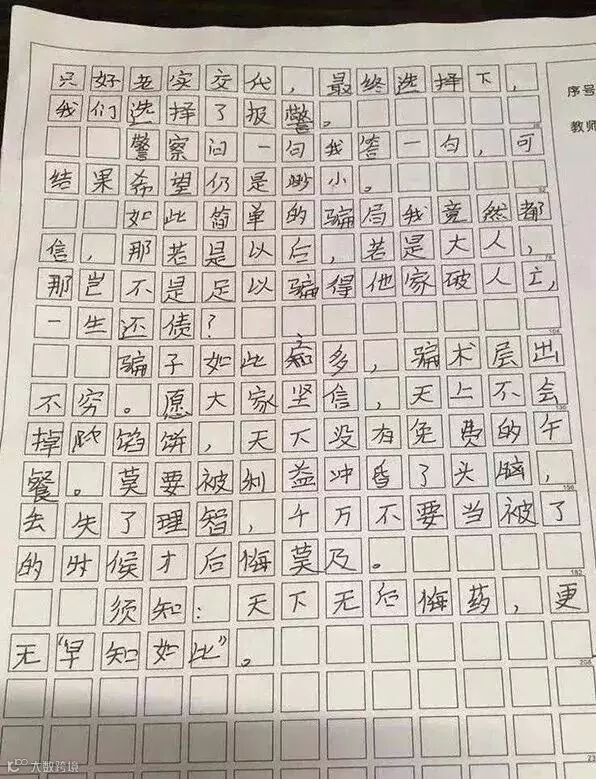 只好老实交代，最终选择下，
我们选择了报警。
警察问一句我答一句，可
结果希望仍是渺小。
如此简单的骗局我竟然都
信，那若是以后，若是大人，
那岂不是足以骗得他家破人亡，
一生还债？
骗子如此之多，骗术层出
不穷。愿大家坚信，天上不会
掉馅饼，天下没有免费的午
餐。莫要被利益冲昏了头脑，
去失了理智，千万不要当被了
的时候才后悔莫及。
须知：天下无后悔药，更
无“早知如此”。
序号
教师
26
52
78
104
130
156
182
208
大数跨境